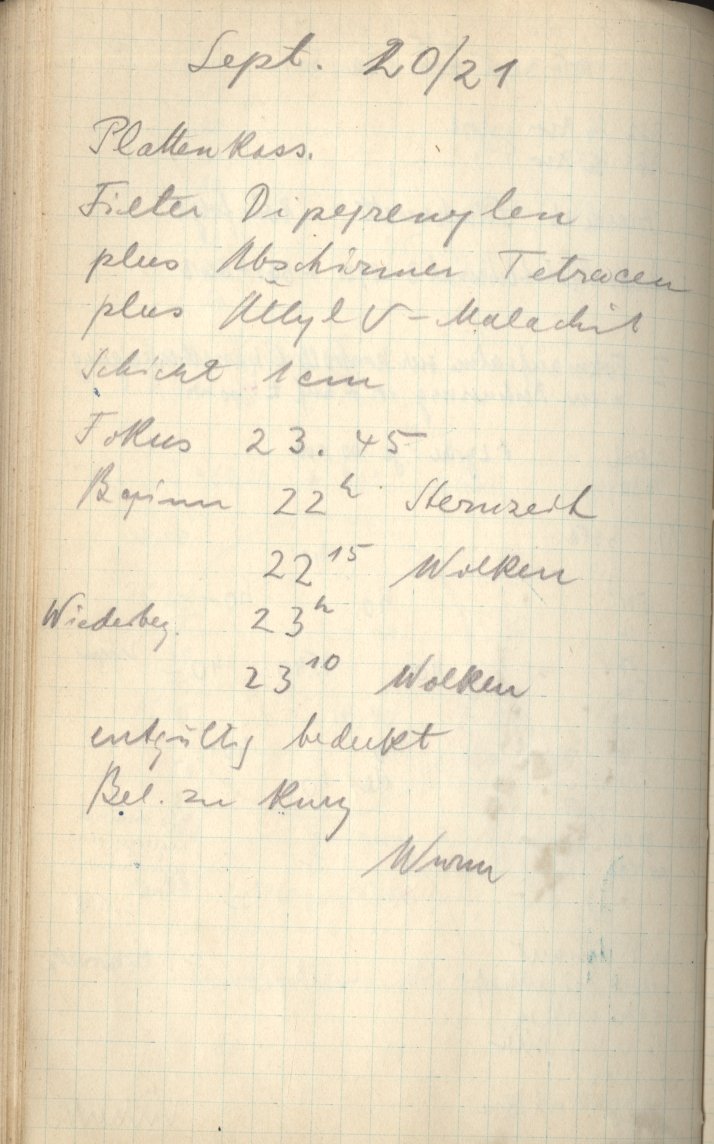 Sept. 20/21
Plattenkass.
Filter Dipyrenylen
plus Abschirmer Tetracen
plus Äthyl V-Malachit
Schicht 1 cm
Fokus 23.45
Beginn 22h Sternzeit
22 15 Wolken
Wiederbeg. 23h
23 10 Wolken
entgültig bedeckt
Bel. zu kurz
Wurm